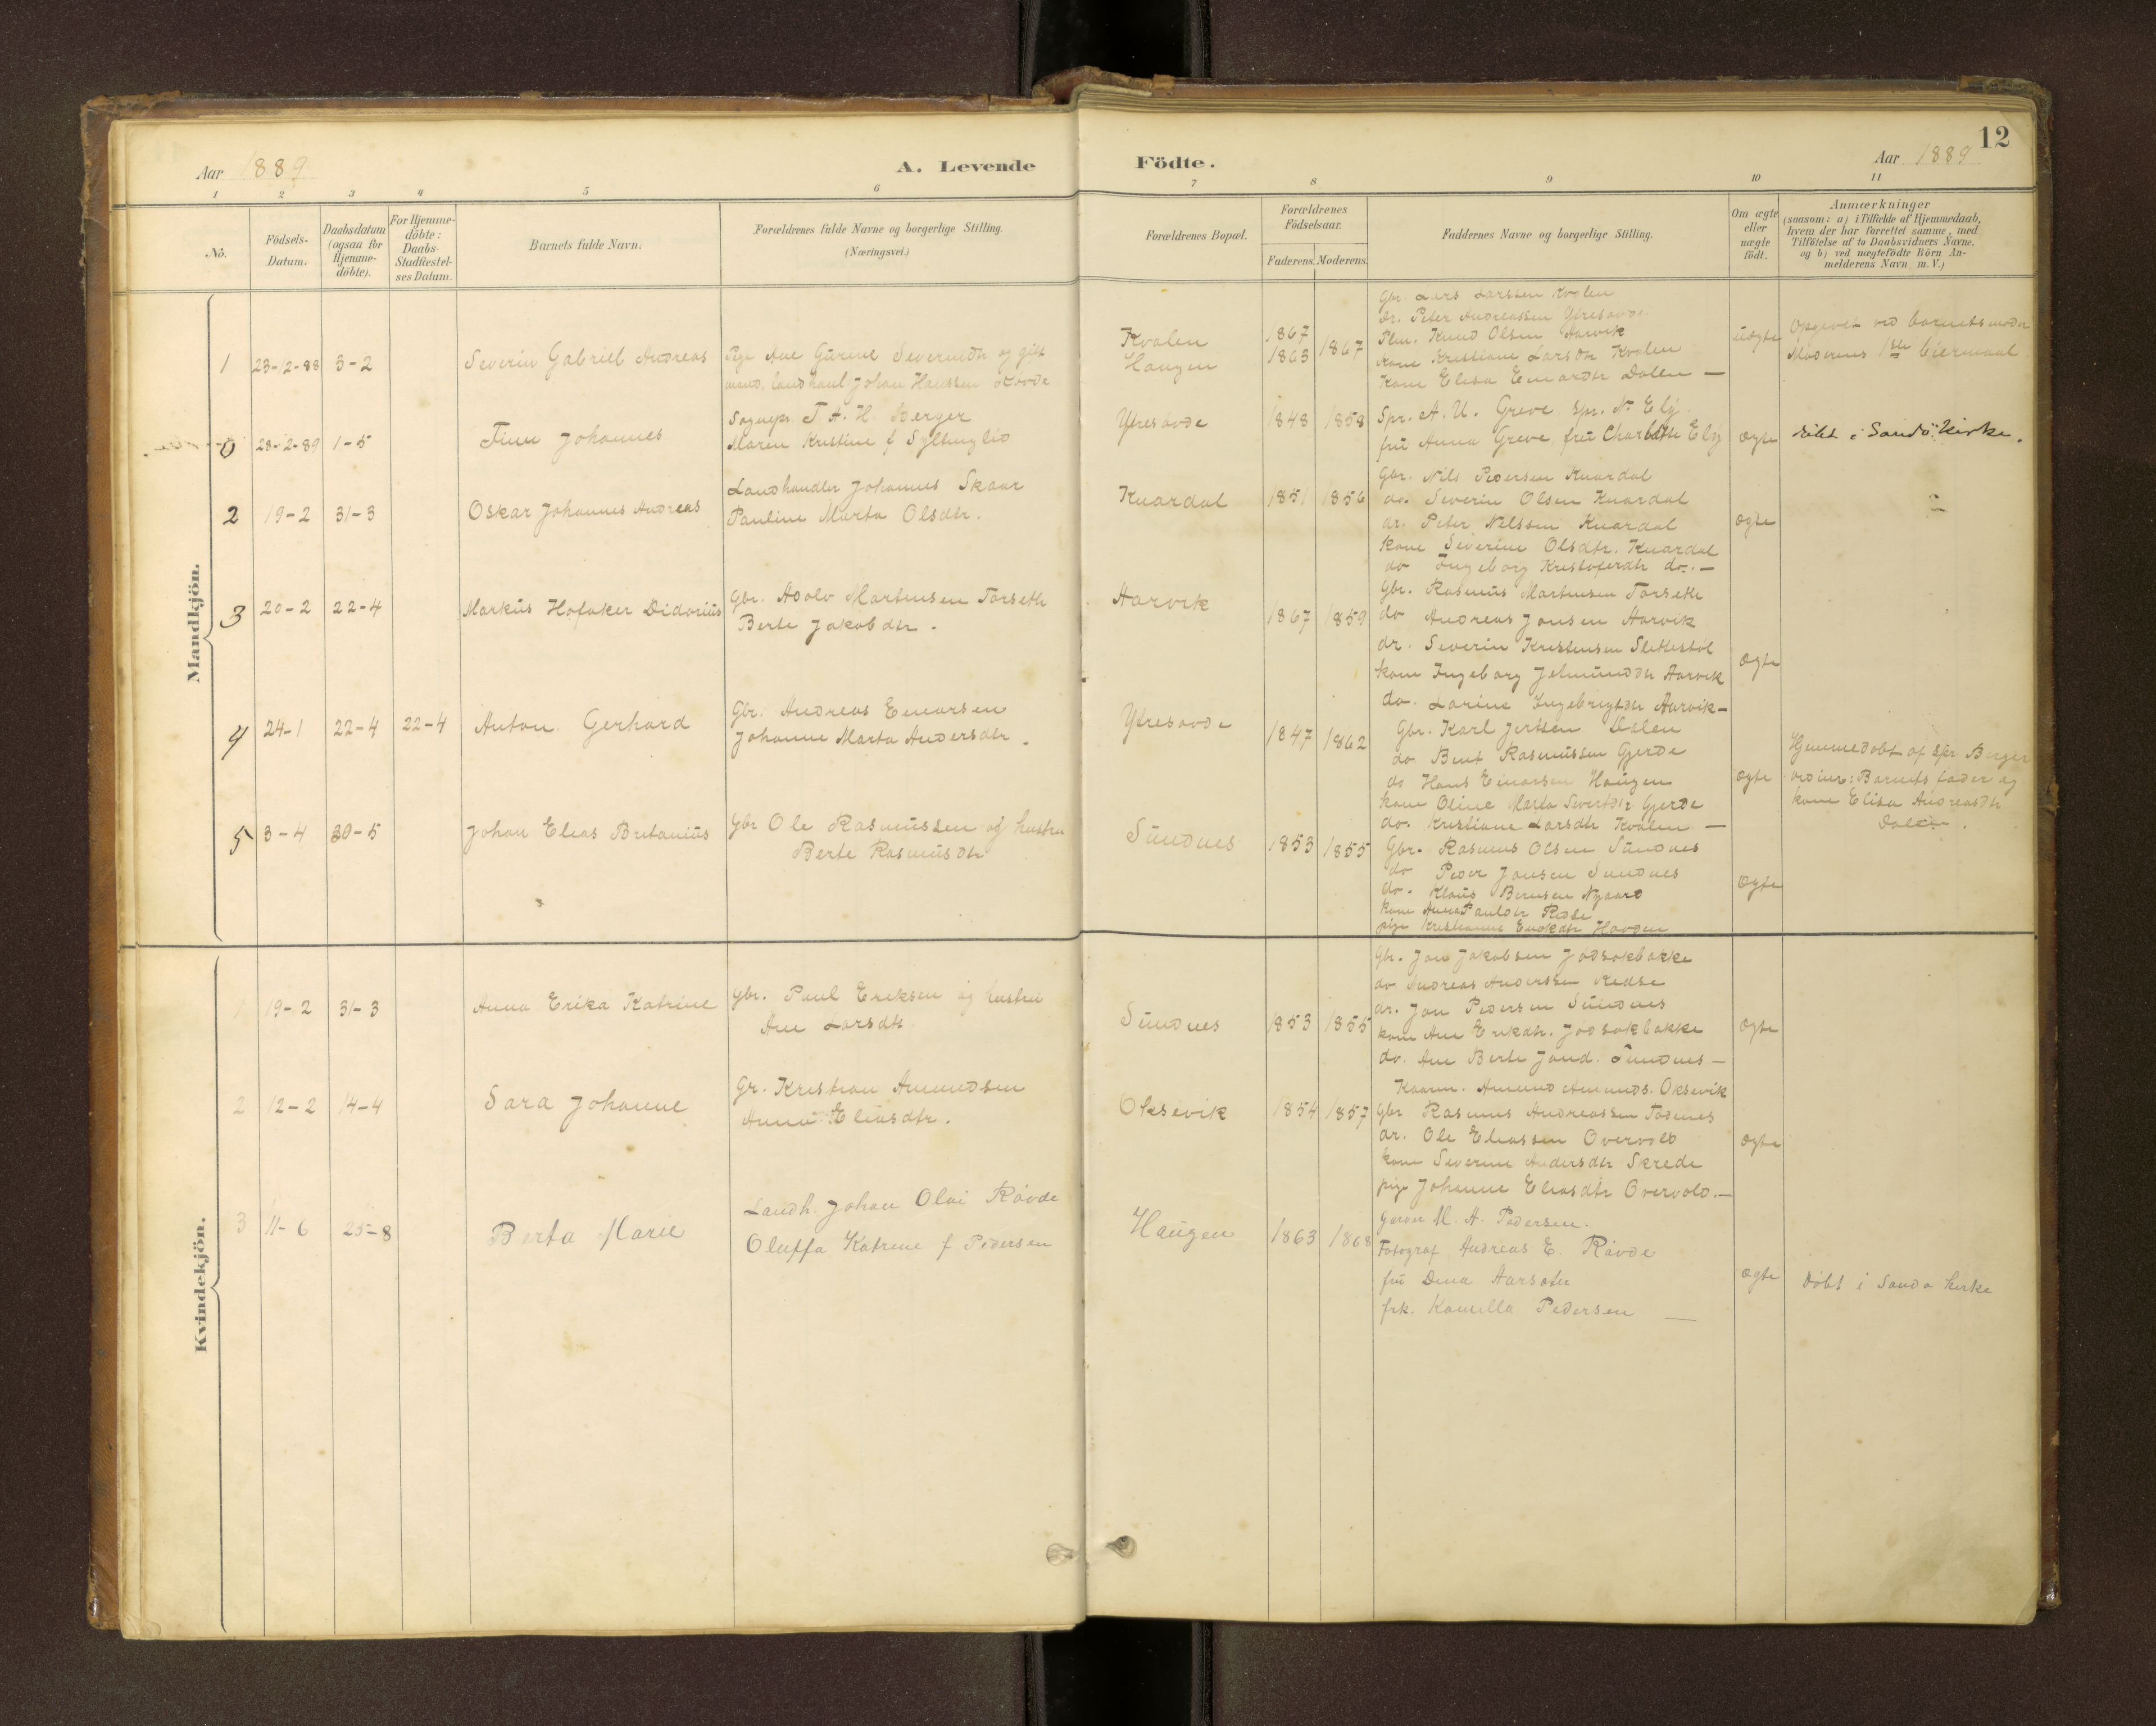 12
Aar 1889
A. Levende Födte.
Aar 1889
1 2 3 4 5 6 7 8 9 10 11
No.
Födsels-Datum.
Daabsdatum (ogsaa for Hjemme-döbte).
For Hjemme-döbte: Daabs-Stadfiestel-ses Datum.
Barnets fulde Navn.
Forældrenes fulde Navne og borgerlige Stilling. (Næringsvei.)
Forældrenes Bopæl.
Forældrenes Födselsaar.
Faderens. Moderens.
Faddernes Navne og borgerlige Stilling.
Om ægte eller uægte födt.
Anmærkninger
(saasom: a) i Tilfælde af Hjemmedaab,
hvem der har forrettet samme, med
Tilföielse af to Daabsvidners Navne,
og b) ved uægtefödte Börn An-
melderens Navn m. V.)
Mandkjön.
1 23-12-88 3-2 Severin Gabriel Andreas
Pige Ane Gurine Severinsdtr og gift
mand, landhandl Johan Hanssen Røvde
Kvalen
Haugen
1867
1863 1867
Gbr Lars Larssen Kvalen
dr. Peter Andreassen Ytresøvde
Plm. Knud Olsen Aarvik
kone Kristiane Larsdtr Kvalen
kone Elisa Einarsdtr Dalen —
uægte
Opgivet ved barnets moder
Moderens 1ste Leiermaal
0 28-2-89 1-5 Finn Johannes
Sognepr. T. A. H. Berger
Maren Kristine f Syltinglid
Ytresøvde 1848 1858
Spr. A. U. Greve, spr. N. Elj.
fru Anna Greve, fru Charlotte Elj
ægte
døbt i Sandø Kirke.
2 19-2 31-3 Oskar Johannes Andreas
Landhandler Johannes Skaar
Pauline Marta Olsdtr.
Knardal 1851 1856
Gbr. Nils Pedersen Knardal
do. Severin Olsen Knardal
dr. Peter Nilssen Knardal
kone Severine Olsdtr. Knardal
do Ingeborg Kristoferdtr do. —
ægte
3 20-2 22-4 Markus Hofaker Didorius
Gbr. Adolv Martinsen Torseth
Berte Jakobdtr.
Aarvik 1867 1859
Gbr. Rasmus Martinsen Torseth
do Andreas Jonsen Aarvik
dr. Severin Kristensen Slettestøl
kone Ingeborg Jelmundsdtr Aarvik
do. Larine Ingebrigtdtr Aarvik —
ægte
4 24-1 22-4 22-4 Anton Gerhard
Gbr. Andreas Einarsen
Johanne Marta Andersdtr.
Ytresøvde 1847 1862
Gbr. Karl Jertsen Dalen
do Bent Rasmussen Gjerde
do Hans Einarsen Haugen
kone Oline Marta Sivertdtr Gjerde
do. Kristiane Larsdtr Kvalen —
ægte
Hjemmedøbt af spr Berger
vidner: Barnets fader og
kone Elisa Andreasdtr
Dalen.
5 3-4 30-5 Johan Elias Britanius
Gbr Ole Rasmussen og hustru
Berte Rasmusdtr
Sundnes 1853 1855
Gbr. Rasmus Olsen Sundnes
do Peder Jonsen Sundnes
do. Klaus Bernsen Nygaard
kone Anna Paulsdtr Reise
pige Kristianne Enokdtr Hovden
ægte
Kvindekjön.
1 19-2 31-3 Anna Erika Katrine
Gbr. Paul Eriksen og hustru
Ane Larsdtr
Sundnes 1853 1855
Gbr. Jon Jakobsen Jodsokbakke
do Andreas Anderssen Redse
dr. Jon Pedersen Sundnes
kone Ane Erikdtr. Jodsokbakke
do. Ane Berte Jonsd. Sundnes —
ægte
2 12-2 14-4 Sara Johanne
Gr. Kristian Amundsen
Anne Eliasdtr.
Oksevik 1854 1857
Kaarm. Amund Amunds. Oksevik
Gbr Rasmus Andreassen Todnes
dr. Ole Eliassen Overvold
kone Severine Andersdtr Skrede
pige Johanne Eliasdtr Overvold. —
ægte
3 11-6 25-8 Berta Marie
Landh. Johan Olai Røvde
Oluffa Katrine f Pedersen
Haugen 1863 1868
Garver M. A. Pedersen.
Fotograf Andreas E. Røvde
fru Dina Aarsæter
frk. Kamilla Pedersen —
ægte
Døbt i Sandø kirke